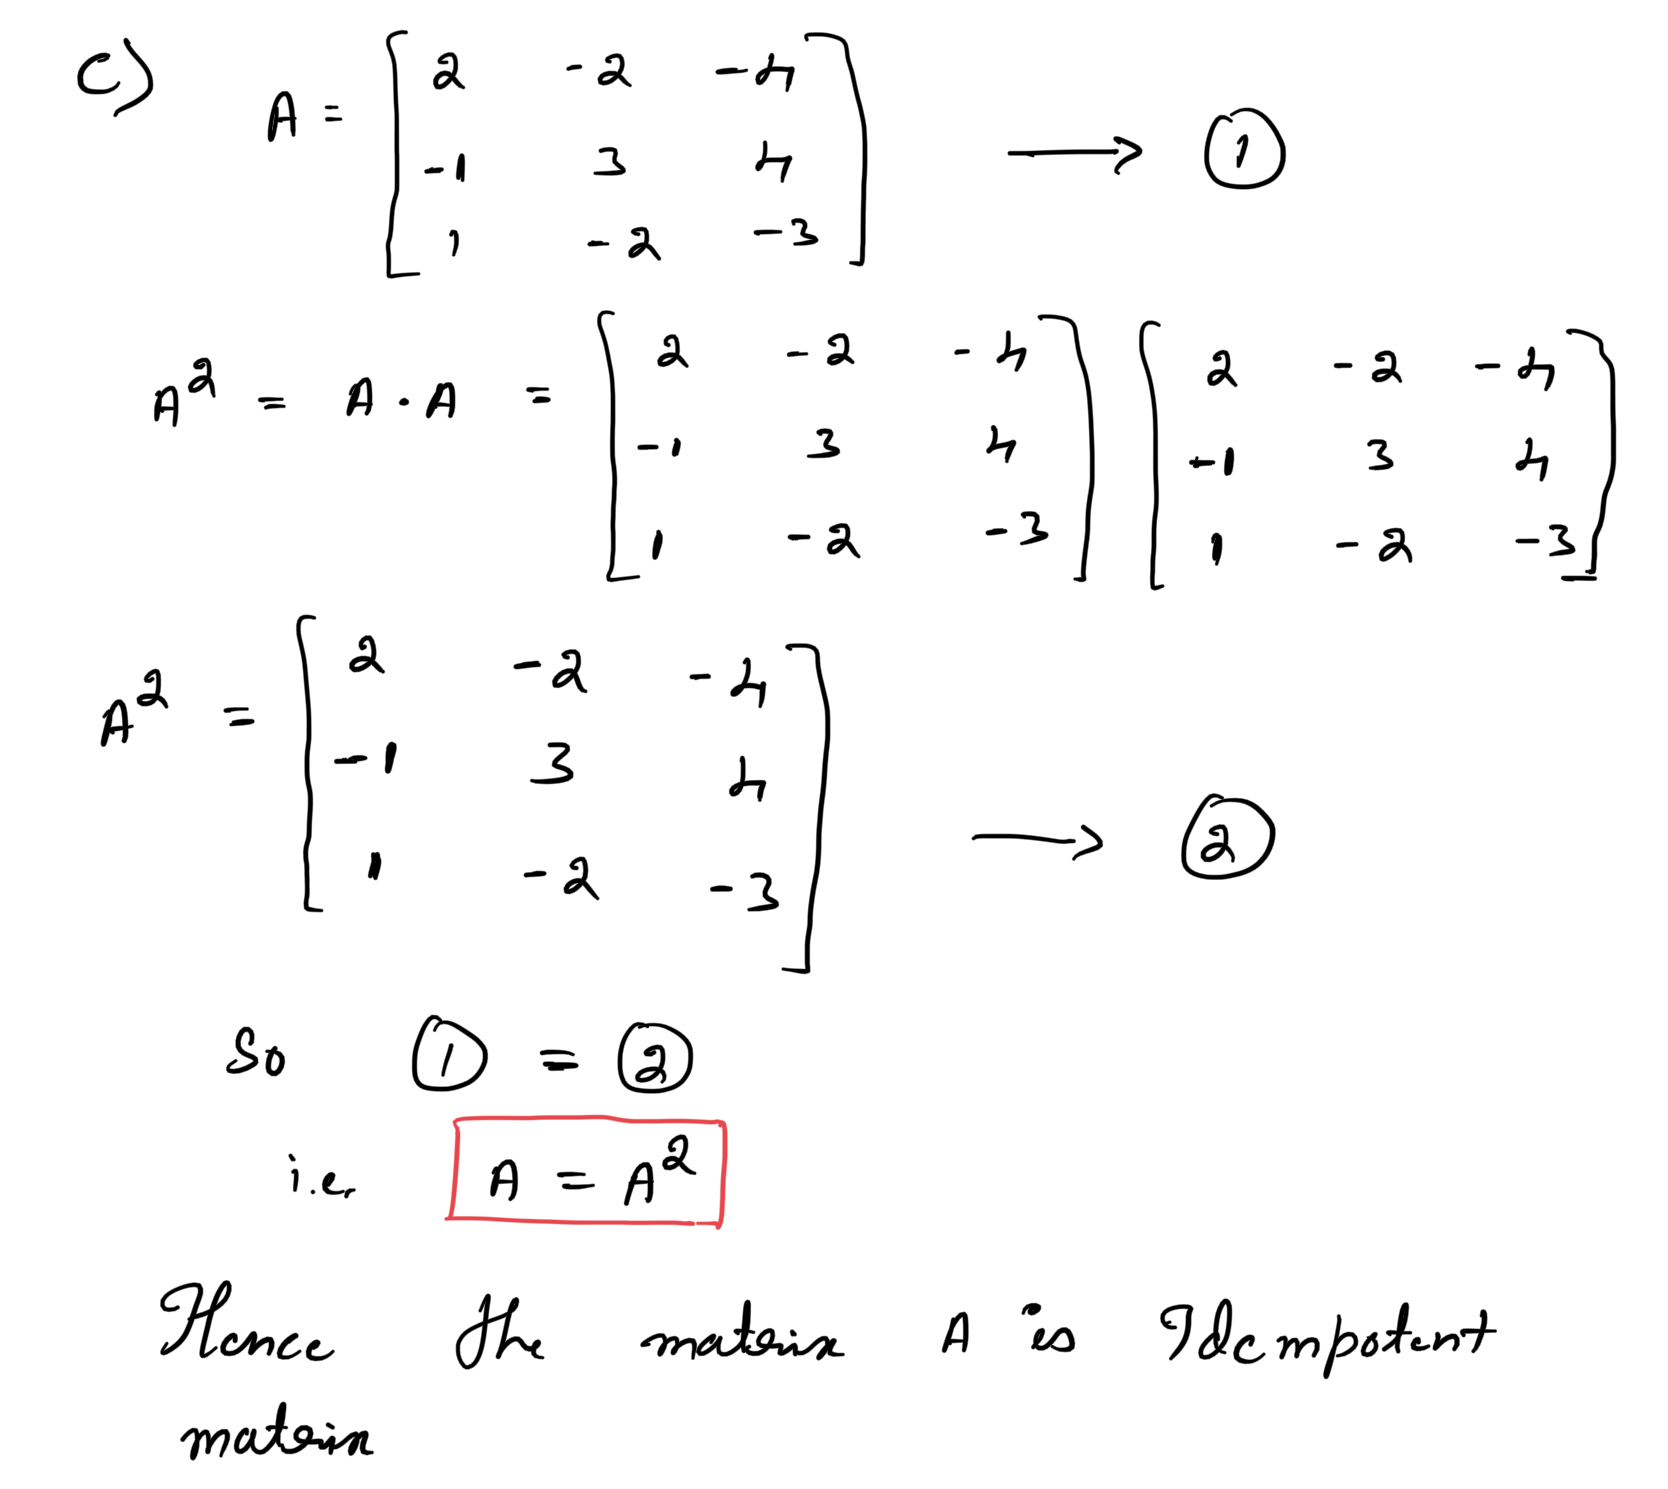 c) A = [ 2 -2 -4 ; -1 3 4 ; 1 -2 -3 ] ⟶ ①
A² = A · A = [ 2 -2 -4 ; -1 3 4 ; 1 -2 -3 ] [ 2 -2 -4 ; -1 3 4 ; 1 -2 -3 ]
A² = [ 2 -2 -4 ; -1 3 4 ; 1 -2 -3 ] ⟶ ②
So ① = ②
i.e. A = A²
Hence the matrix A is Idempotent
matrix